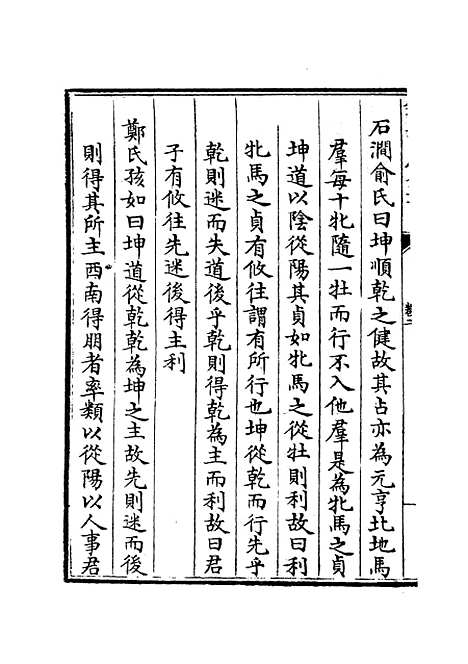 石澗俞氏曰坤順乾之健故其占亦為元亨北地馬
羣每十牝隨一牡而行不入他羣是為牝馬之貞
坤道以陰從陽其貞如牝馬之從牡則利故曰利
牝馬之貞有攸往謂有所行也坤從乾而行先乎
乾則迷而失道後乎乾則得乾為主而利故曰君
子有攸往先迷後得主利
鄭氏孩如曰坤道從乾乾為坤之主故先則迷而後
則得其所主西南得朋者率類以從陽以人事君